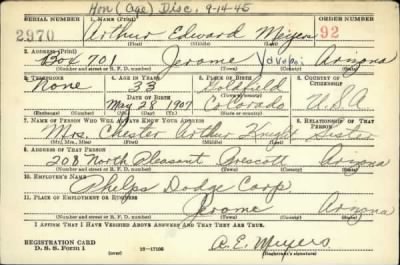 Hon (Age) Disc. 9-14-45
SERIAL NUMBER 1. NAME (Print) ORDER NUMBER
2970 Arthur Edward Meyers 92
(First) (Middle) (Last)
2. ADDRESS (Print)
Box 701 Jerome Yavapai Arizona
(Number and street or R. F. D. number) (Town) (County) (State)
3. TELEPHONE 4. AGE IN YEARS 5. PLACE OF BIRTH 6. COUNTRY OF CITIZENSHIP
None 33 Goldfield
DATE OF BIRTH
May 28 1907 Colorado U.S.A
(Mo.) (Day) (Yr.) (State or country)
7. NAME OF PERSON WHO WILL ALWAYS KNOW YOUR ADDRESS 8. RELATIONSHIP OF THAT PERSON
Mrs. Chester Arthur Knight Sister
(Mr., Mrs., Miss) (First) (Middle) (Last)
9. ADDRESS OF THAT PERSON
208 North Pleasant Prescott Arizona
(Number and street or R. F. D. number) (Town) (County) (State)
10. EMPLOYER'S NAME
Phelps Dodge Corp
11. PLACE OF EMPLOYMENT OR BUSINESS
Jerome Arizona
(Number and street or R. F. D. number) (Town) (County) (State)
I AFFIRM THAT I HAVE VERIFIED ABOVE ANSWERS AND THAT THEY ARE TRUE.
REGISTRATION CARD
D. S. S. Form 1 (over) 16-17105 A. E. Meyers
(Registrant's signature)